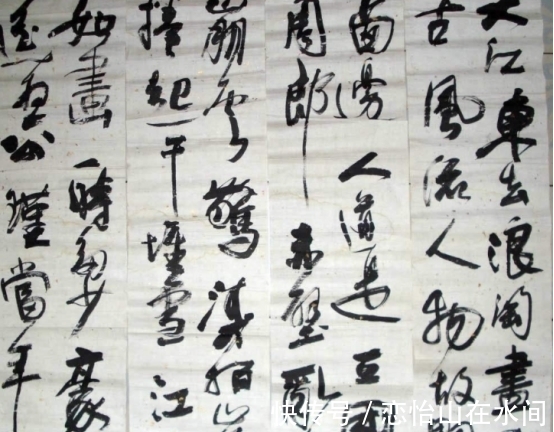 大江東去浪淘盡
古風流人物故
西邊人道是三國
周郎赤壁亂
崩雲驚濤拍岸
捲起千堆雪江
如畫一時多少豪
遥想公瑾當年
快传号 / 恋怡山在水间